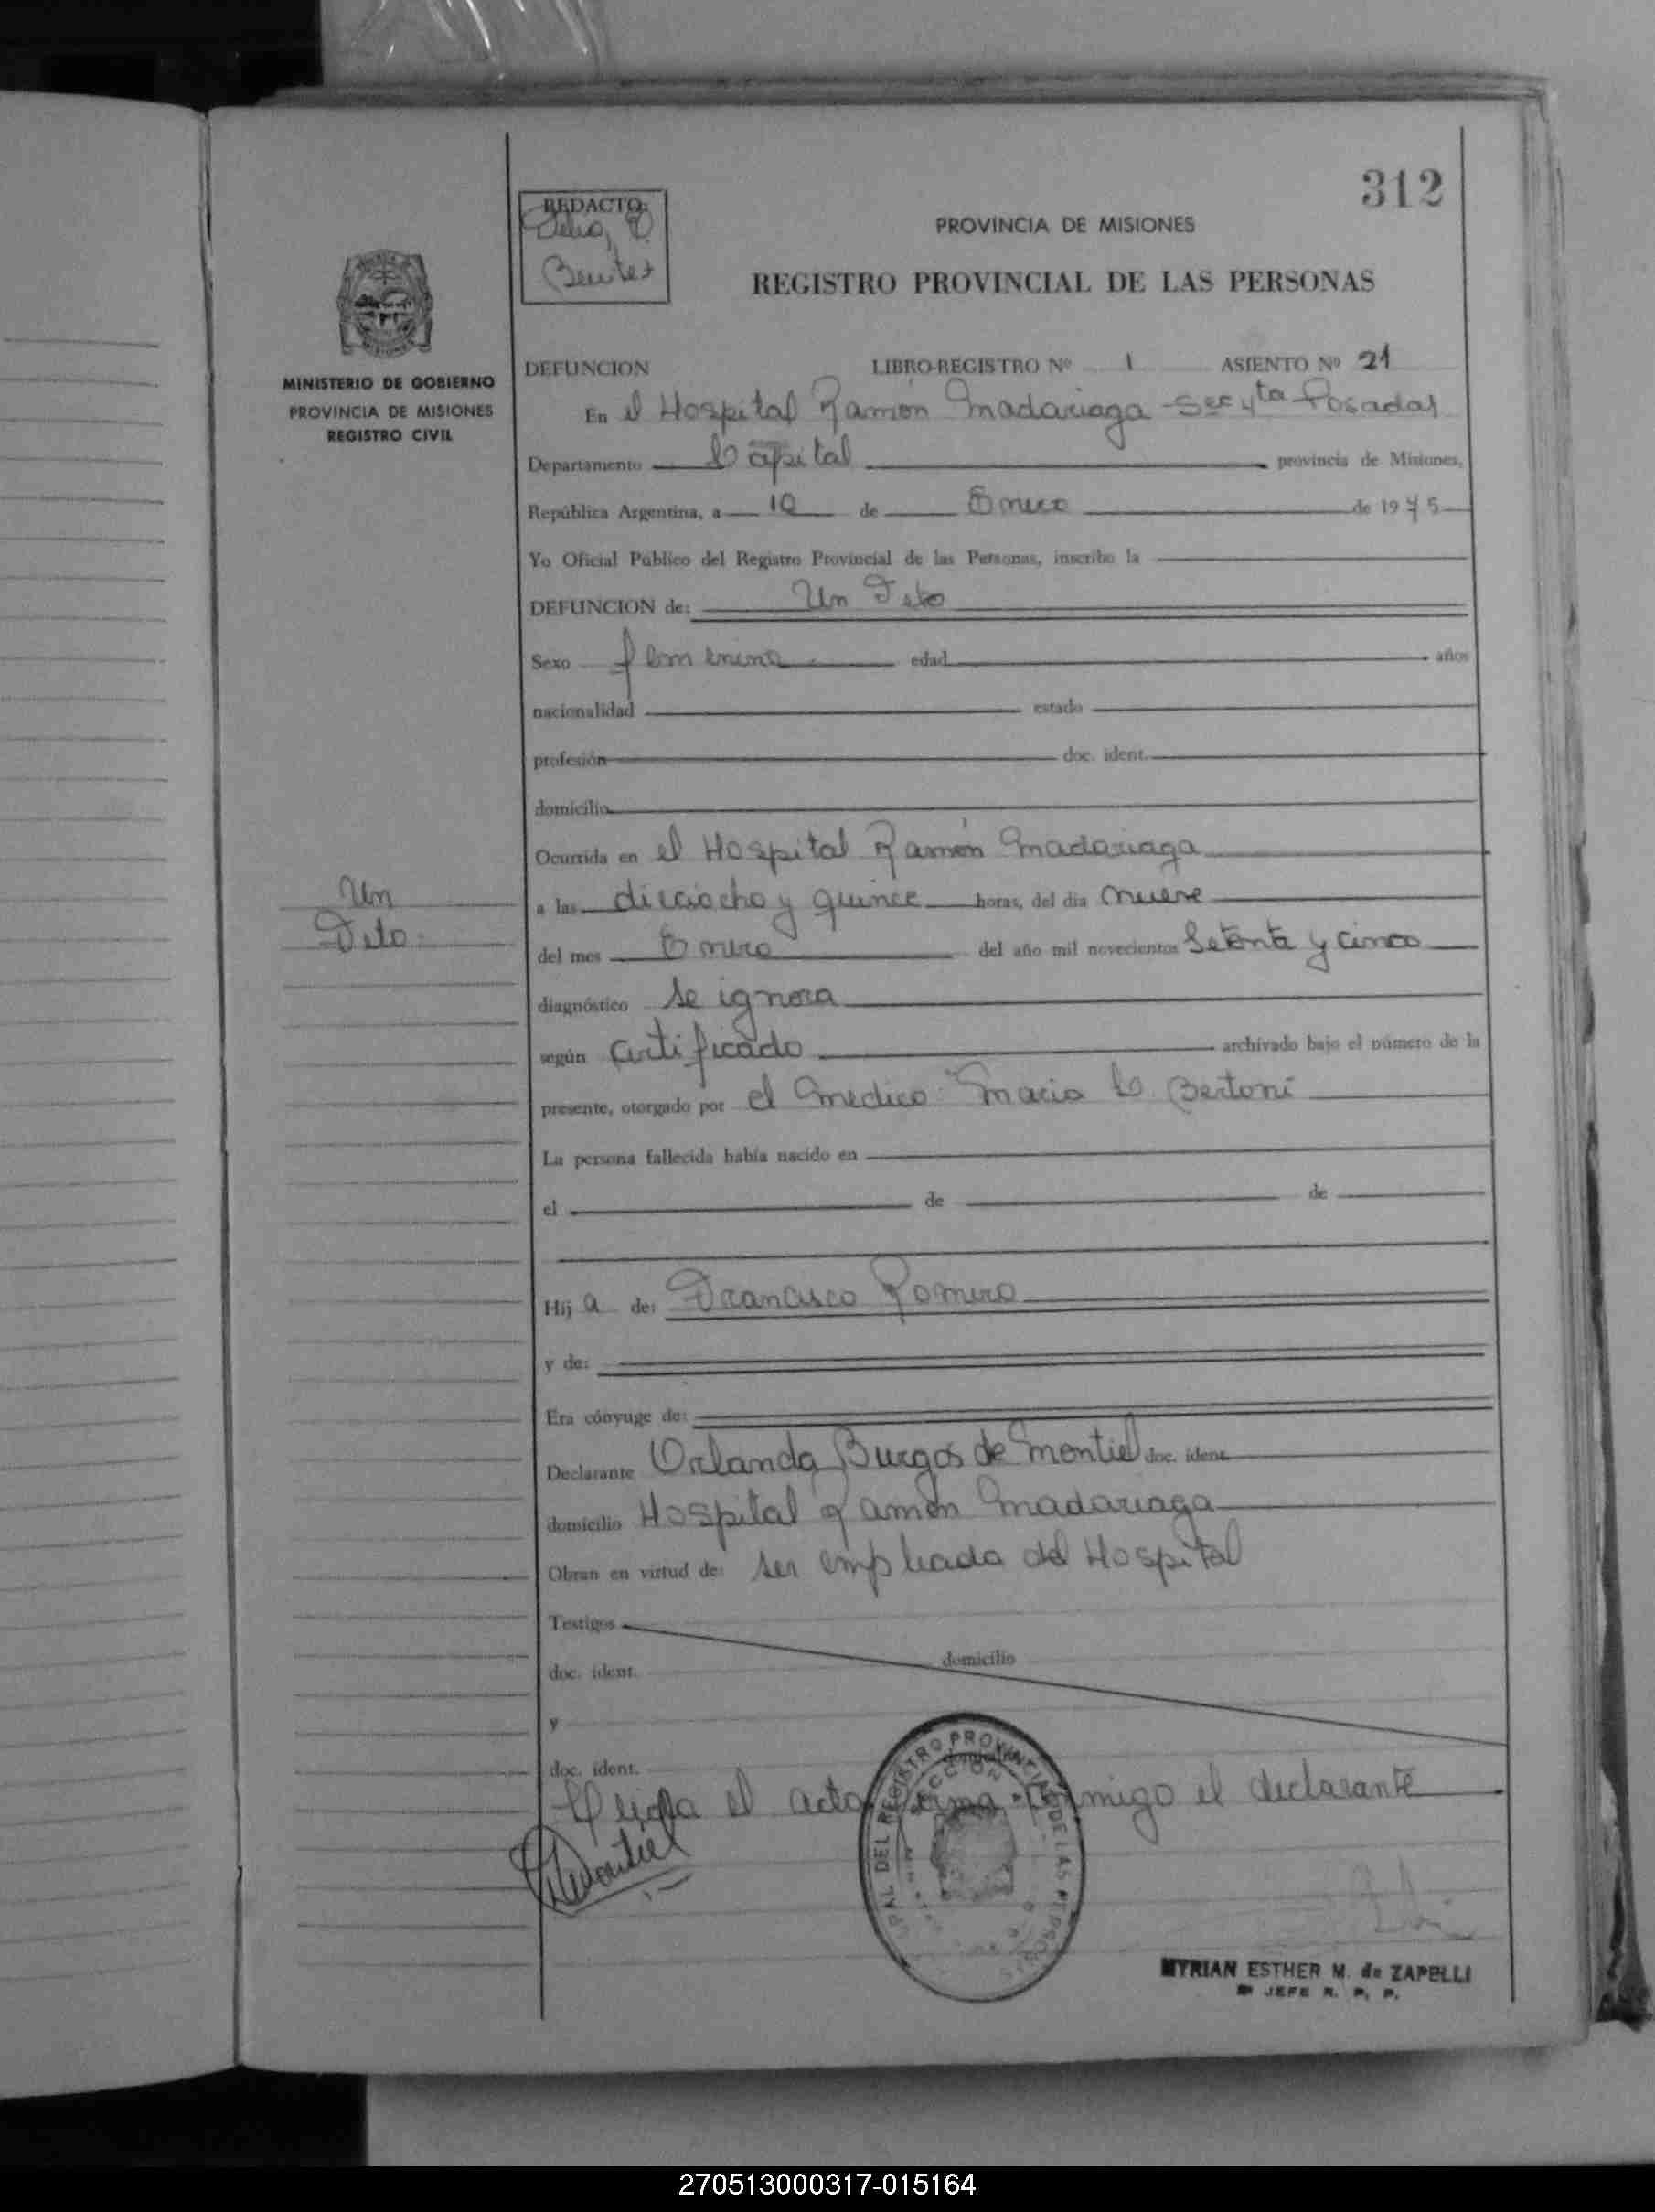 312
REDACTO:
Benitez
PROVINCIA DE MISIONES
REGISTRO PROVINCIAL DE LAS PERSONAS
MINISTERIO DE GOBIERNO
PROVINCIA DE MISIONES
REGISTRO CIVIL
DEFUNCION LIBRO-REGISTRO Nº 1 ASIENTO Nº 21
En el Hospital Ramón Madariaga Secc 4ta Posadas
Departamento Capital provincia de Misiones,
República Argentina, a 10 de Enero de 1975
Yo Oficial Público del Registro Provincial de las Personas, inscribo la
DEFUNCION de: Un Feto
Sexo femenino edad años
nacionalidad estado
profesión doc. ident.
domicilio
Ocurrida en el Hospital Ramón Madariaga
a las dieciocho y quince horas, del día nueve
del mes Enero del año mil novecientos Setenta y cinco
diagnóstico Se ignora
según Certificado archivado bajo el número de la
presente, otorgado por el Medico Mario C Bertoni
La persona fallecida había nacido en
el de de
Hij a de: Francisco Romero
y de:
Era cónyuge de:
Declarante Orlanda Burgos de Montiel doc. ident.
domicilio Hospital Ramón Madariaga
Obran en virtud de: ser empleada del Hospital
Testigos
doc. ident. domicilio
y
doc. ident. domicilio
el acta firma conmigo el declarante
Montiel
Un
Feto.
DEL REGISTRO PROVINCIAL DE LAS PERSONAS
MYRIAN ESTHER M. de ZAPELLI
JEFE R. P. P.
270513000317-015164